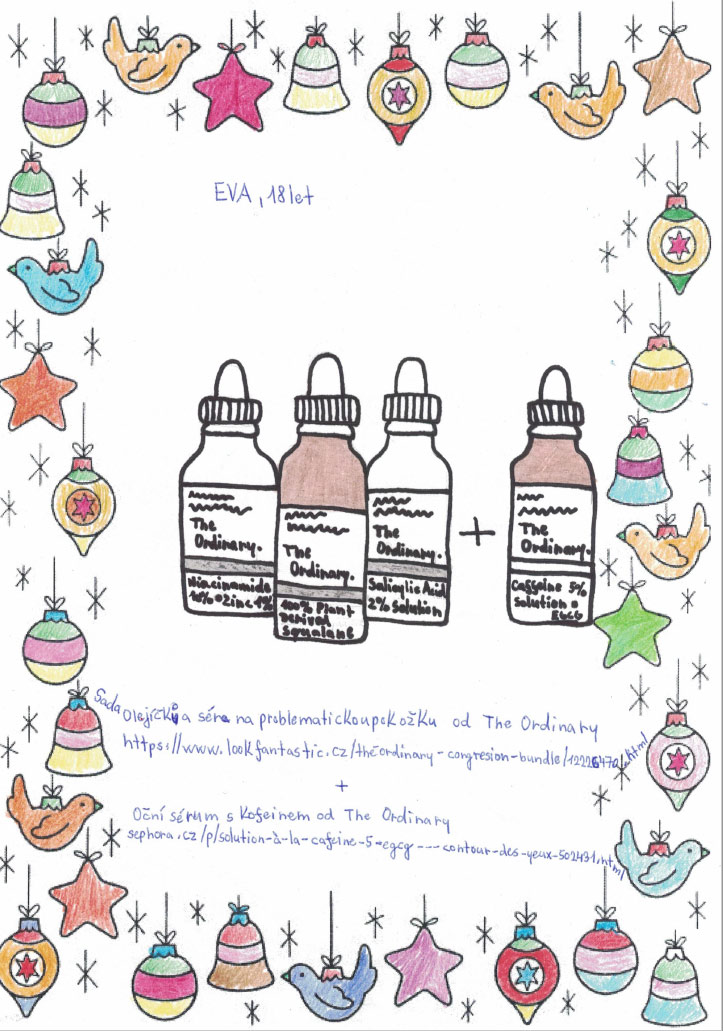 EVA, 18 let
The
Ordinary.
Niacinamide
10% + Zinc 1%
The
Ordinary.
100% Plant
Derived
Squalane
The
Ordinary.
Salicylic Acid
2% Solution
+
The
Ordinary.
Caffeine 5%
Solution +
EGCG
Sada Olejíčků a séra na problematickou pokožku od The Ordinary
https://www.lookfantastic.cz/the-ordinary-congresion-bundle/12226470.html
+
Oční sérum s Kofeinem od The Ordinary
sephora.cz/p/solution-à-la-cafeine-5-egcg---contour-des-yeux-502431.html